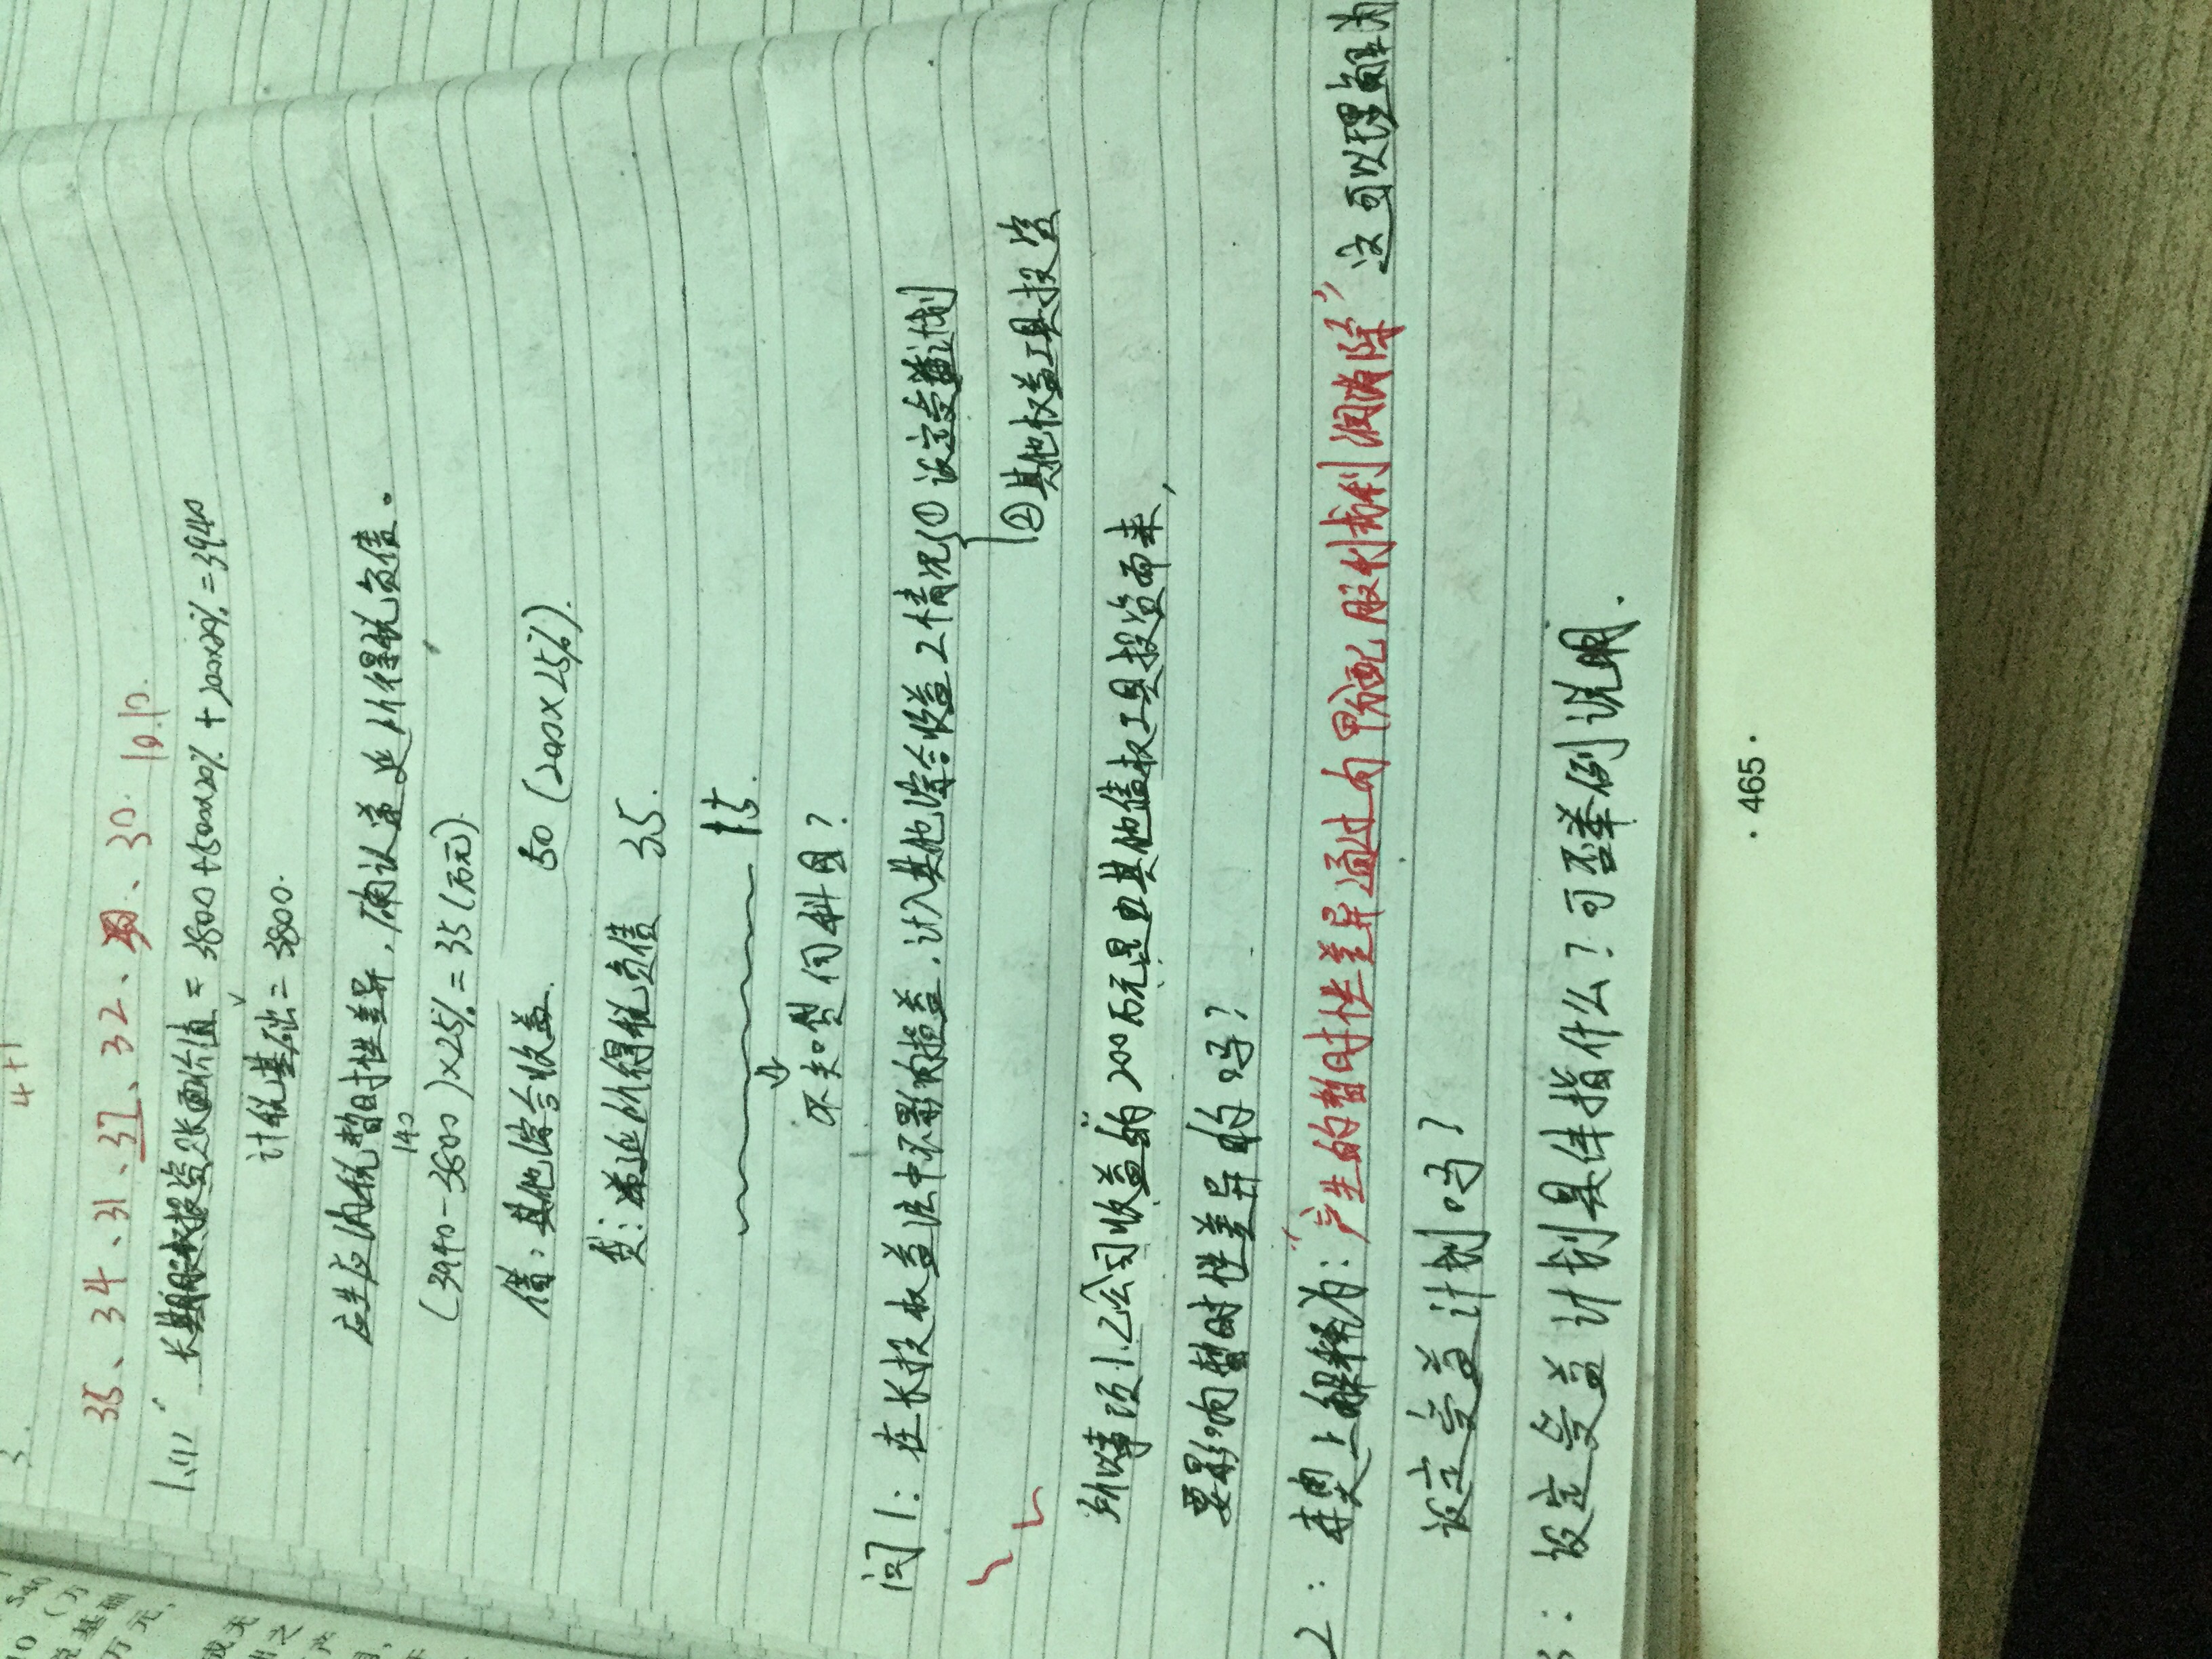 3.
4+1
35、34、31、37、32、30. 10.10.
1、(1) 长期股权投资账面价值 = 3800+500×20% + 200×20% = 3940
计税基础 = 3800.
应生应纳税暂时性差异，确认递延所得税负债。
140
(3940-3800)×25% = 35(万元).
借：其他综合收益. 50 (200×25%).
贷：递延所得税负债 35.
15.
不知啥何科目？
问1：在长投权益法中不影响损益，计入其他综合收益2情况 ① 设定受益计划
②其他权益工具投资
所以事项1.乙公司收益的200万元是由其他债权工具投资而来，
要影响暂时性差异的吗？
2：书上解释为：“产生的暂时性差异通过向甲分配股利或利润消除” 这可以理解为
设定受益计划吗？
3：设定受益计划具体指什么？可否举例说明.
·465·
540
10（万
税基础
万元，